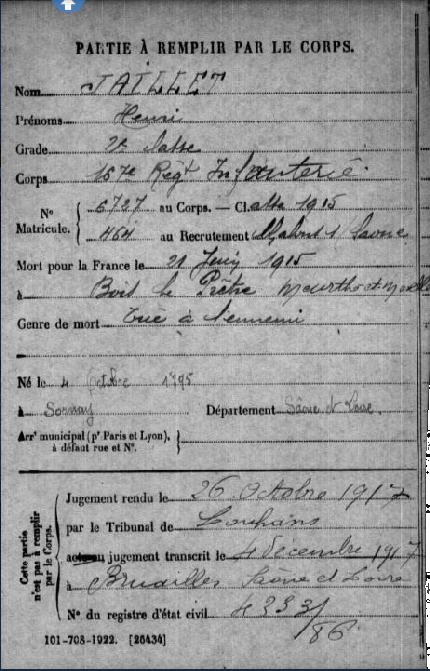 PARTIE À REMPLIR PAR LE CORPS.
Nom JAILLET
Prénoms Henri
Grade 2e classe
Corps 157e Régt Infanterie
Nº Matricule. 6727 au Corps. — Cl. 1915
464 au Recrutement Mâcon Saone
Mort pour la France le 21 Juin 1915
à Bois le Prêtre Meurthe et Moselle
Genre de mort Tué à l'ennemi
Né le 4 Octobre 1895
à Sornay Département Saône et Loire.
Arrt municipal (pr Paris et Lyon),
à défaut rue et Nº.
Cette partie n'est pas à remplir par le Corps.
Jugement rendu le 26 Octobre 1917
par le Tribunal de Louhans
acte ou jugement transcrit le 4 décembre 1917
à Bruailles Saone et Loire
Nº du registre d'état civil 
/86
101-708-1922. [26434]